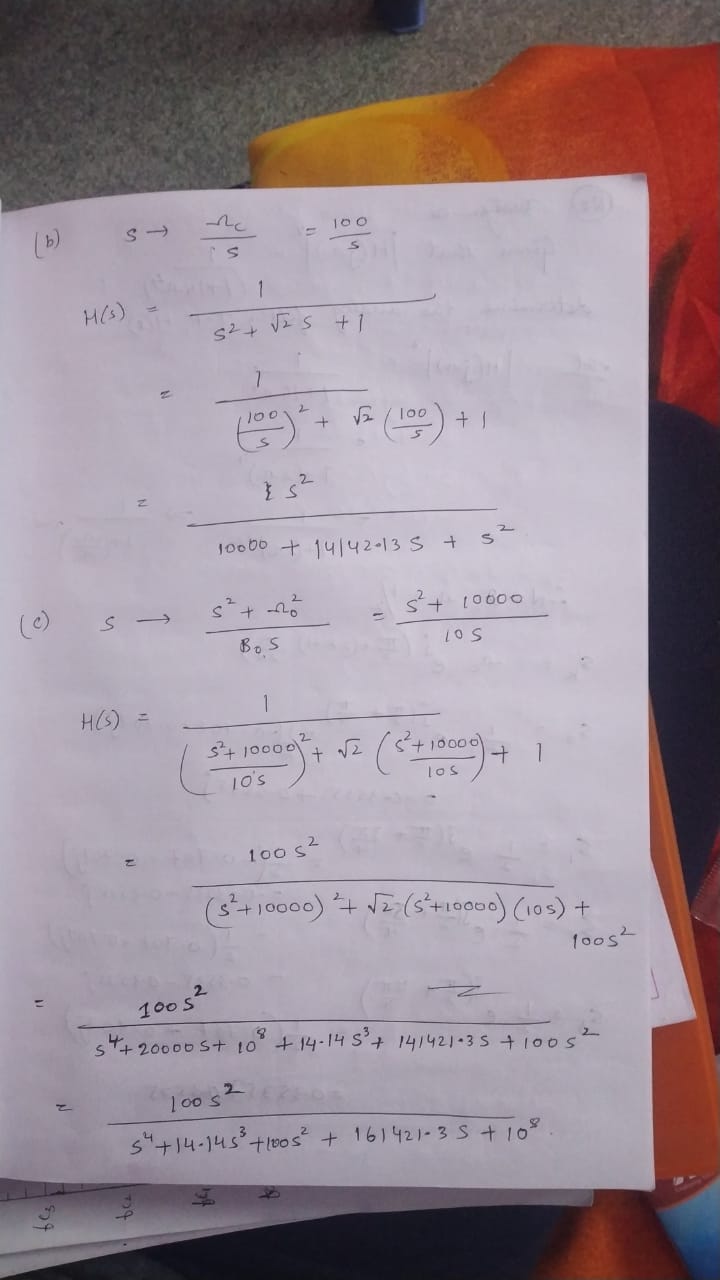 (b) s → Ωc / s = 100 / s
H(s) = 1 / (s² + √2 s + 1)
= 1 / ((100/s)² + √2 (100/s) + 1)
= s² / (10000 + 14142.13 s + s²)
(c) s → (s² + Ω₀²) / (B₀ s) = (s² + 10000) / (10 s)
H(s) = 1 / (((s² + 10000)/(10 s))² + √2 ((s² + 10000)/(10 s)) + 1)
= 100 s² / ((s² + 10000)² + √2 (s² + 10000) (10 s) + 100 s²)
= 100 s² / (s⁴ + 20000 s + 10⁸ + 14.14 s³ + 141421.3 s + 100 s²)
= 100 s² / (s⁴ + 14.14 s³ + 100 s² + 161421.3 s + 10⁸)